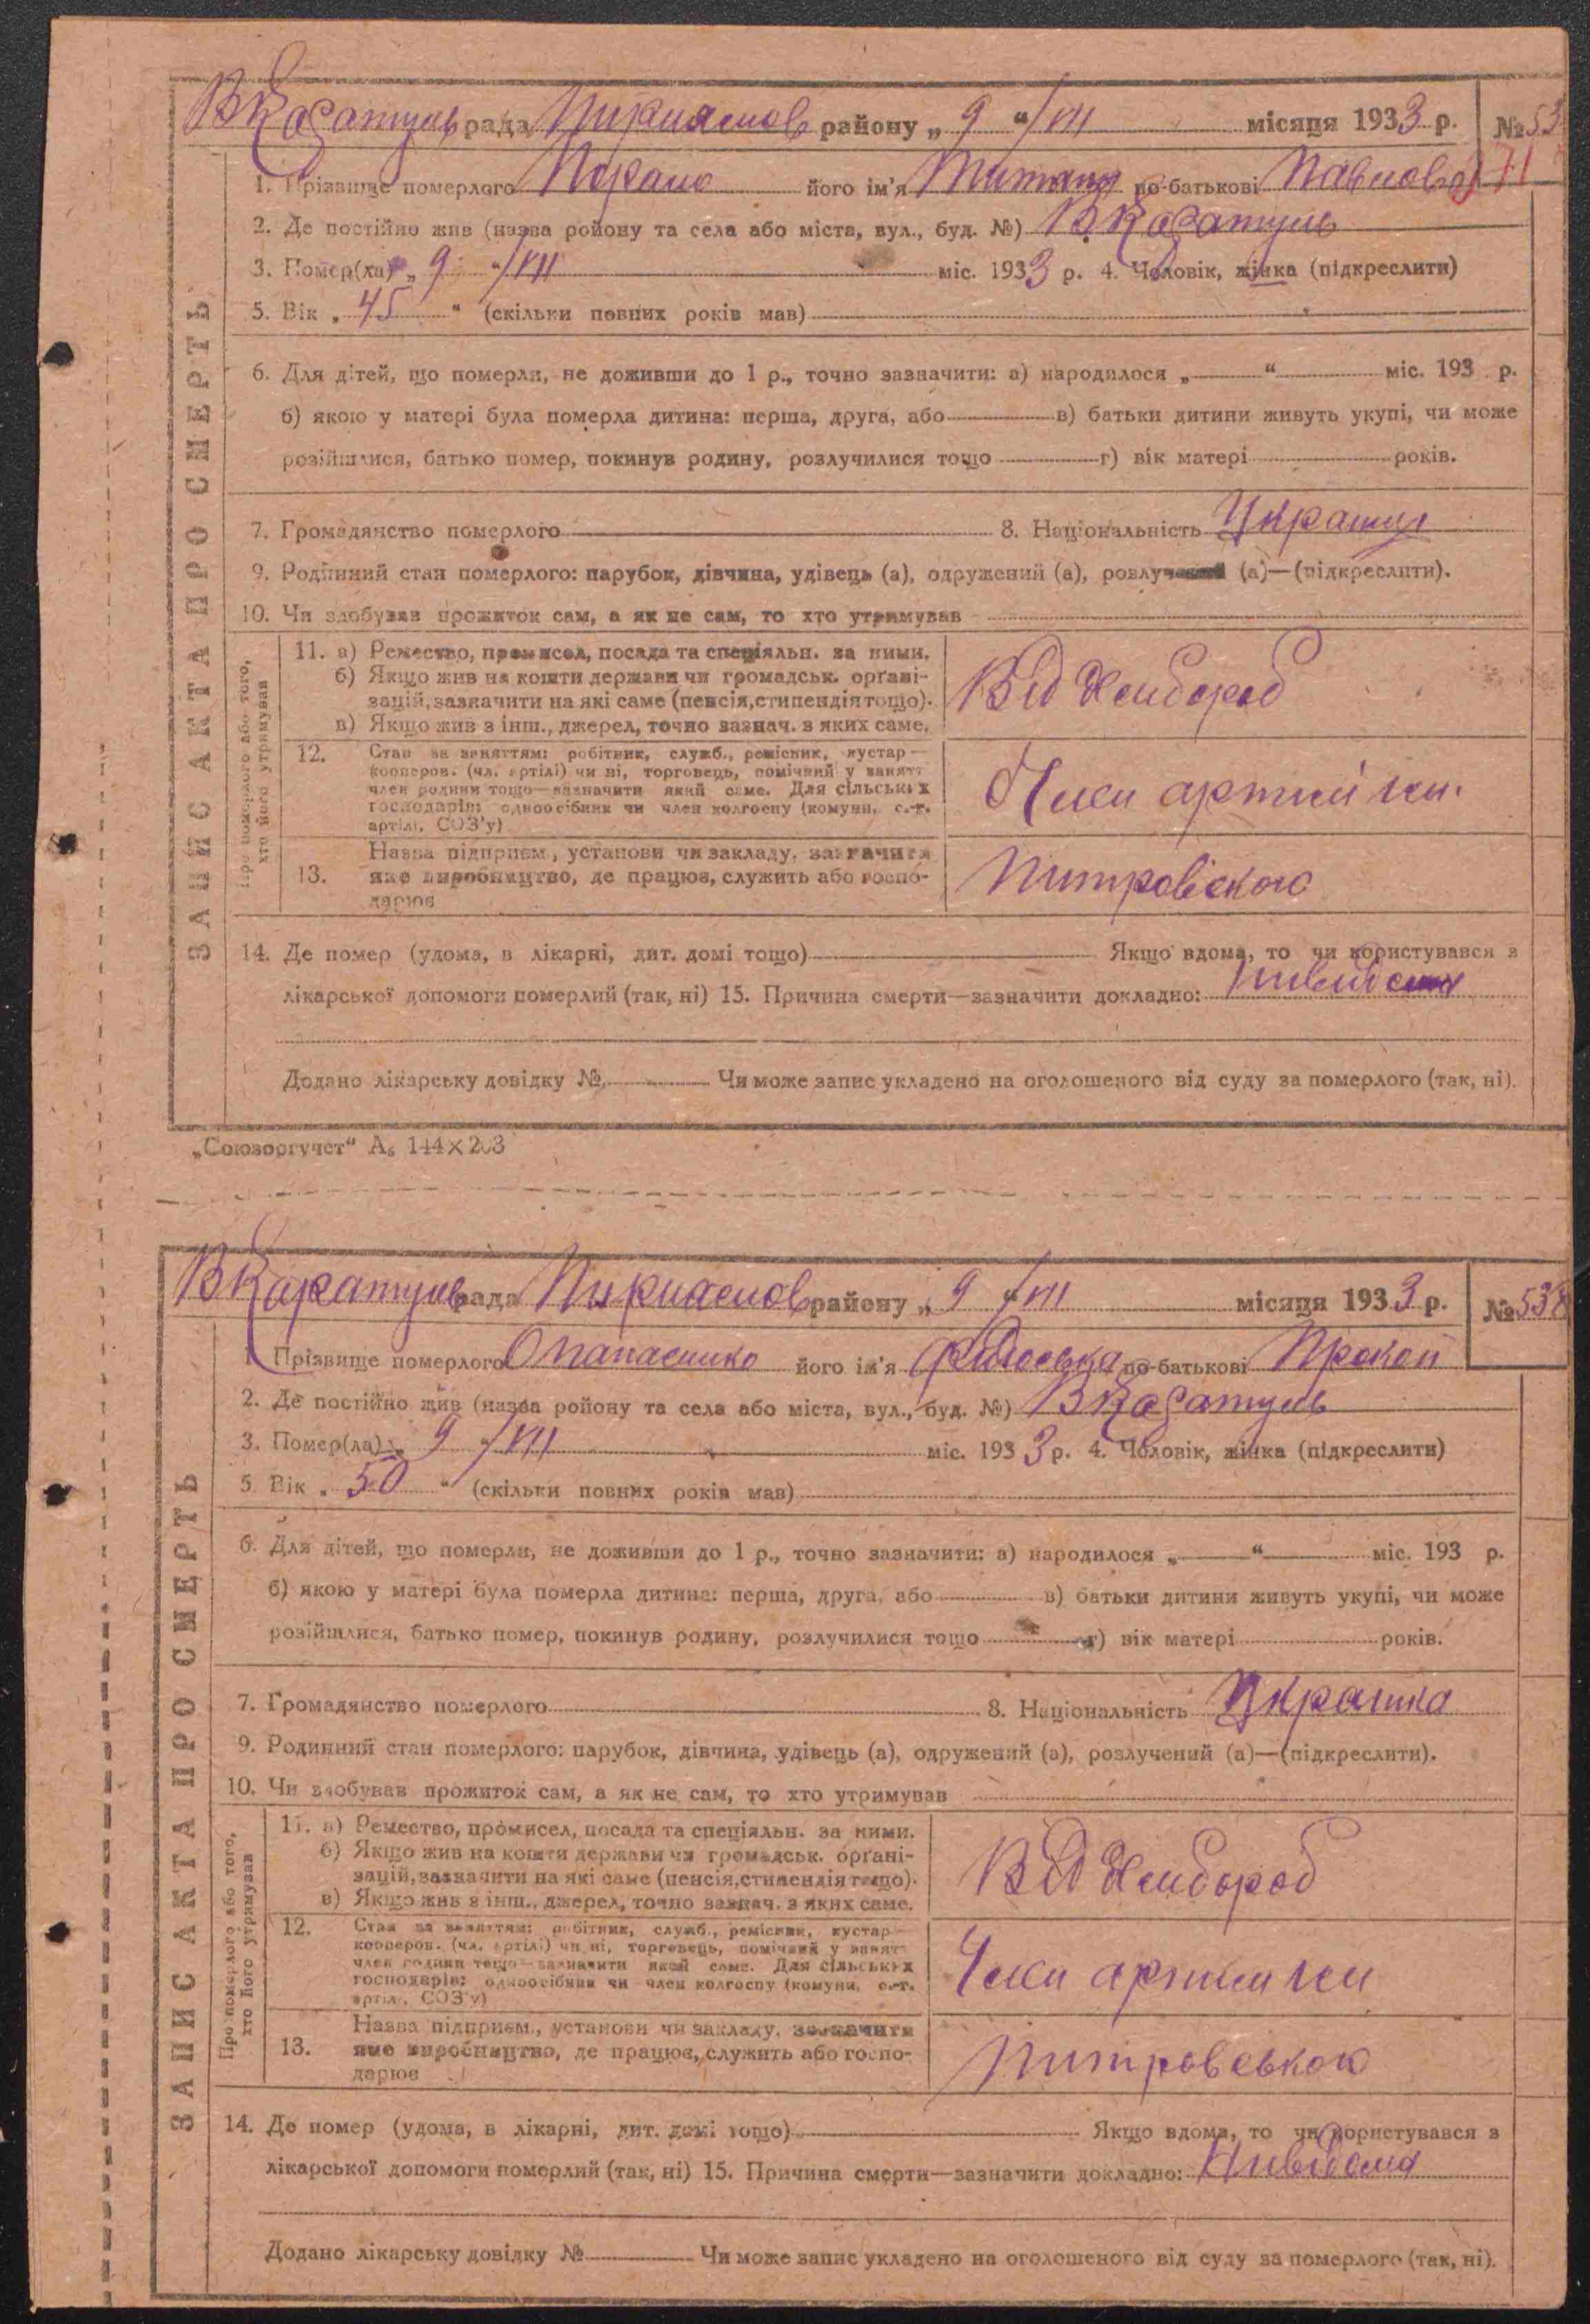 ВКаратуль рада Пиряиснов району „ 9 “ /VIII місяця 1933 р. № 53
1. Прізвище померлого його ім'я по-батькові Павлова 71
2. Де постійно жив (назва ройону та села або міста, вул., буд. №) В Каратуль
3. Помер(ла) „ 9 “ /VIII міс. 1933 р. 4. Чоловік, жінка (підкреслити)
5. Вік „ 45 “ (скільки повних років мав)
6. Для дітей, що померли, не доживши до 1 р., точно зазначити: а) народилося „ “ міс. 193 р.
б) якою у матері була померла дитина: перша, друга, або в) батьки дитини живуть укупі, чи може
розійшлися, батько помер, покинув родину, розлучилися тощо г) вік матері років.
7. Громадянство померлого 8. Національність Україн
9. Родинний стан померлого: парубок, дівчина, удівець (а), одружений (а), розлучений (а)—(підкреслити).
10. Чи здобував прожиток сам, а як не сам, то хто утримував
ЗАПИС АКТА ПРО СМЕРТЬ
Про померлого або того,
хто його утримував
11. а) Ремество, промисел, посада та спеціяльн. за ними.
б) Якщо жив на кошти держави чи громадськ. органі-
зацій, зазначити на які саме (пенсія, стипендія тощо).
в) Якщо жив з інш., джерел, точно зазнач. з яких саме.
Від Хлибороб
12. Стан за заняттям: робітник, служб., ремісник, кустар—
кооперов. (чл. артілі) чи ні, торговець, помічний у занятт
член родини тощо—зазначити який саме. Для сільських
господарів: одноосібник чи член колгоспу (комуни, с.-г.
артілі, СОЗ'у)
Член артили
13. Назва підприєм., установи чи закладу, зазначити
яке виробництво, де працює, служить або госпо-
дарює
Питровского
14. Де помер (удома, в лікарні, дит. домі тощо) Якщо вдома, то чи користувався з
лікарської допомоги померлий (так, ні) 15. Причина смерти—зазначити докладно: Нивидома
Додано лікарську довідку № Чи може запис укладено на оголошеного від суду за померлого (так, ні).
„Союзоргучет“ А₅ 144×203
ВКаратуль рада району „ 9 “ /VIII місяця 1933 р. № 538
1. Прізвище померлого Опанасенко його ім'я Федоська по-батькові Прокоп
2. Де постійно жив (назва ройону та села або міста, вул., буд. №) В Каратуль
3. Помер(ла) „ 9 “ /VIII міс. 1933 р. 4. Чоловік, жінка (підкреслити)
5. Вік „ 50 “ (скільки повних років мав)
6. Для дітей, що померли, не доживши до 1 р., точно зазначити: а) народилося „ “ міс. 193 р.
б) якою у матері була померла дитина: перша, друга, або в) батьки дитини живуть укупі, чи може
розійшлися, батько помер, покинув родину, розлучилися тощо г) вік матері років.
7. Громадянство померлого 8. Національність Українка
9. Родинний стан померлого: парубок, дівчина, удівець (а), одружений (а), розлучений (а)—(підкреслити).
10. Чи здобував прожиток сам, а як не сам, то хто утримував
ЗАПИС АКТА ПРО СМЕРТЬ
Про померлого або того,
хто його утримував
11. а) Ремество, промисел, посада та спеціяльн. за ними.
б) Якщо жив на кошти держави чи громадськ. органі-
зацій, зазначити на які саме (пенсія, стипендія тощо).
в) Якщо жив з інш., джерел, точно зазнач. з яких саме.
Від Хлибороб
12. Стан за заняттям: робітник, служб., ремісник, кустар—
кооперов. (чл. артілі) чи ні, торговець, помічний у занятт
член родини тощо—зазначити який саме. Для сільських
господарів: одноосібник чи член колгоспу (комуни, с.-г.
артілі, СОЗ'у)
Член артили
13. Назва підприєм., установи чи закладу, зазначити
яке виробництво, де працює, служить або госпо-
дарює
Питровського
14. Де помер (удома, в лікарні, дит. домі тощо) Якщо вдома, то чи користувався з
лікарської допомоги померлий (так, ні) 15. Причина смерти—зазначити докладно: Нивидома
Додано лікарську довідку № Чи може запис укладено на оголошеного від суду за померлого (так, ні).